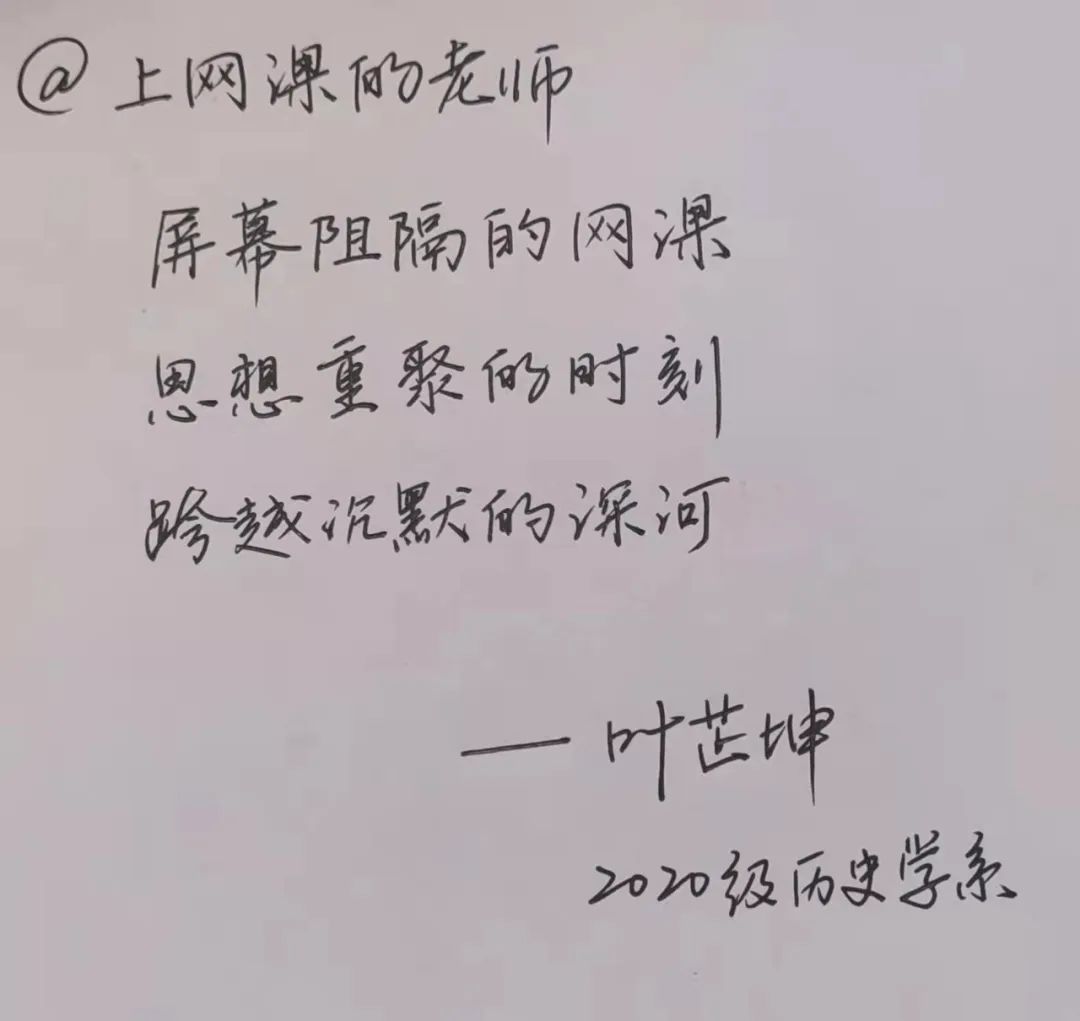 @上网课的老师
屏幕阻隔的网课
思想重聚的时刻
跨越沉默的深河
——叶芷坤
2020级历史学系